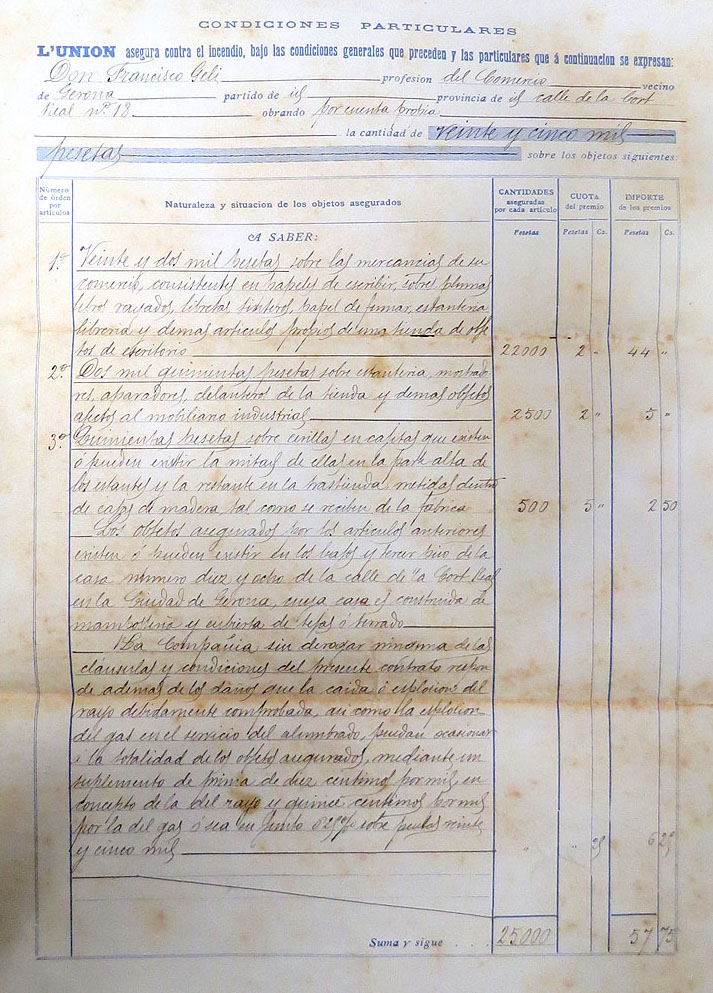 CONDICIONES PARTICULARES
L'UNION asegura contra el incendio, bajo las condiciones generales que preceden y las particulares que á continuacion se expresan:
Don Francisco Geli profesion del Comercio vecino
de Gerona partido de id provincia de id calle de la Cort
Real nº 18 obrando por cuenta propia
la cantidad de veinte y cinco mil
pesetas sobre los objetos siguientes:
Número de órden por artículos
Naturaleza y situacion de los objetos asegurados
CANTIDADES aseguradas por cada artículo
CUOTA del premio
IMPORTE de los premios
A SABER:
Pesetas Pesetas Cs. Pesetas Cs.
1.º Veinte y dos mil pesetas sobre las mercancias de su
comercio, consistentes en papeles de escribir, sobres plumas
libros rayados, libretas tinteros, papel de fumar, estanteria
libreria y demas articulos propios de una tienda de obje
tos de escritorio 22000 2 " 44 "
2.º Dos mil quinientas pesetas sobre estanteria, mostrado
res, aparadores, delanteros de la tienda y demas objetos
afectos al mobiliario industrial 2500 2 " 5 "
3.º Quinientas pesetas sobre cerillas en cajitas que existen
ó pueden existir la mitad de ellas en la parte alta de
los estantes y la restante en la trastienda metidas dentro
de cajas de madera, tal como se reciben de la fabrica 500 5 " 2 50
Los objetos asegurados por los articulos anteriores
existen ó pueden existir en los bajos y tercer piso de la
casa número diez y ocho de la calle de la Cort Real
en la Ciudad de Gerona, cuya casa es construida de
mamposteria y cubierta de tejas ó terrado
La Compañia sin derogar ninguna de las
cláusulas y condiciones del presente contrato respon
de ademas de los daños que la caida ó esplosion del
rayo debidamente comprobada, asi como la esplosion
del gas en el servicio del alumbrado, puedan ocasionar
á la totalidad de los objetos asegurados, mediante un
suplemento de prima de diez centimos por mil, en
concepto de la del rayo y quince centimos por mil
por la del gas ó sea en junto sobre pesetas veinte
y cinco mil " " 25 6 25
Suma y sigue 25000 57 75